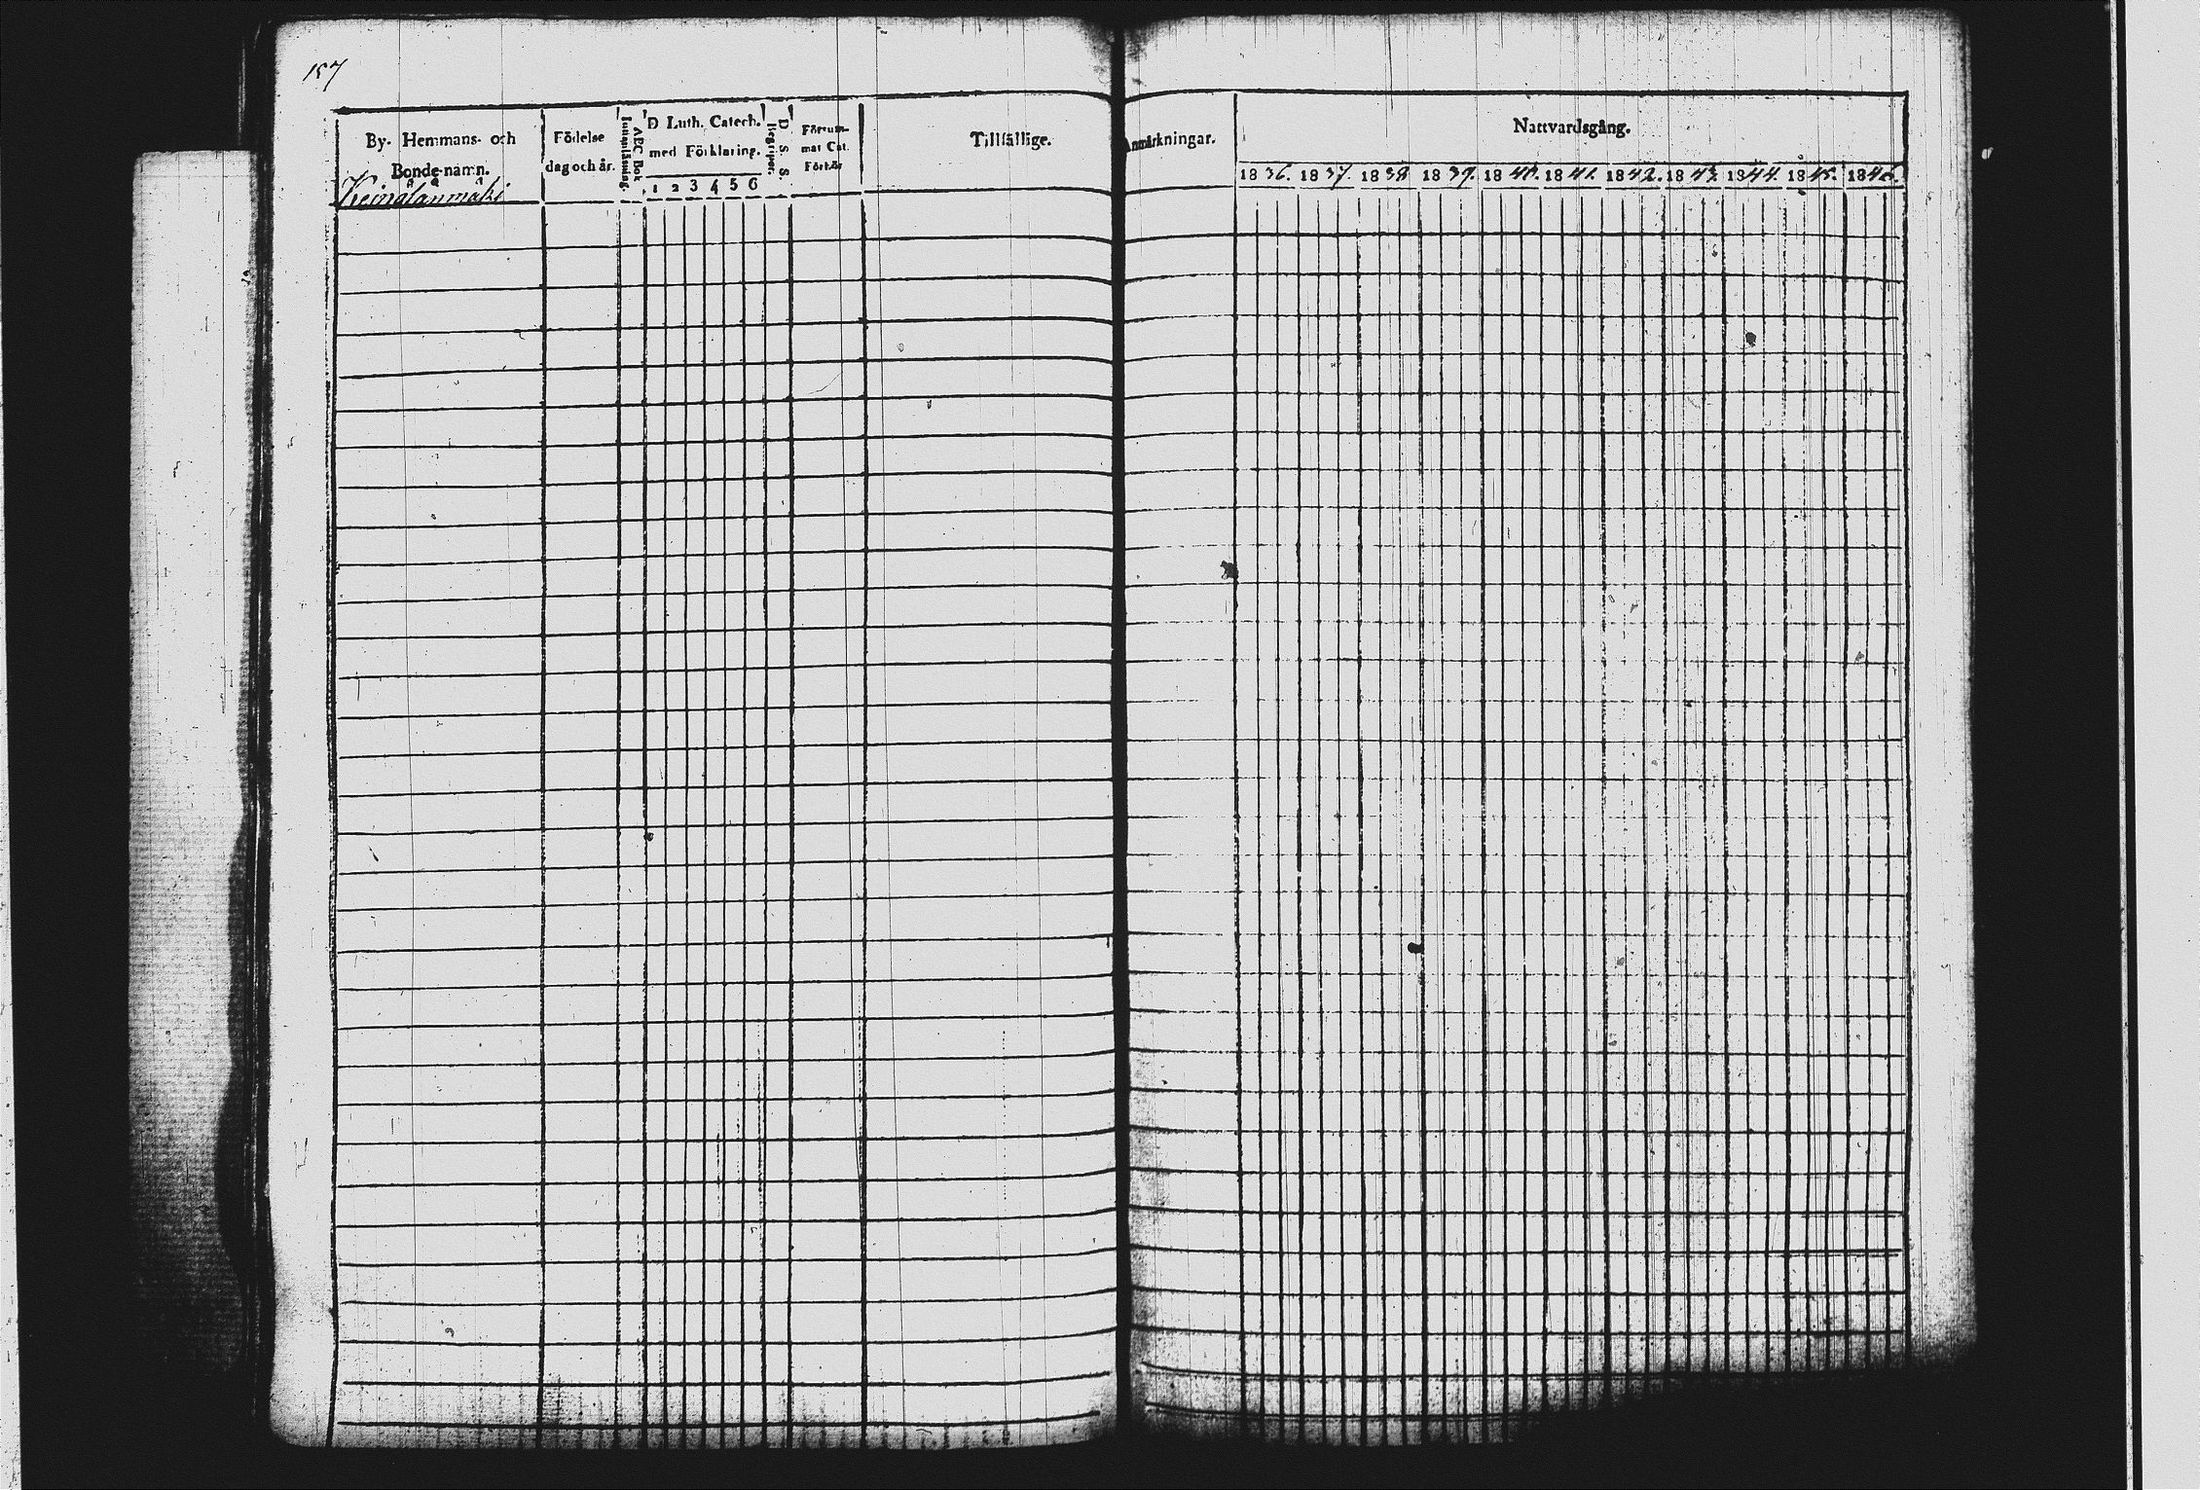 157
By- Hemmans- och
Bonde-namn.
Födelse
dag och år.
ABC Bok
Innanläsning.
D Luth. Catech.
med Förklaring.
1 2 3 4 5 6
D. S. S.
Begripes.
Försum-
mat Cat.
Förhör
Tillfällige.
Anmärkningar.
Nattvardsgång.
1836. 1837. 1838 1839. 1840. 1841. 1842. 1843. 1844. 1845. 1846.